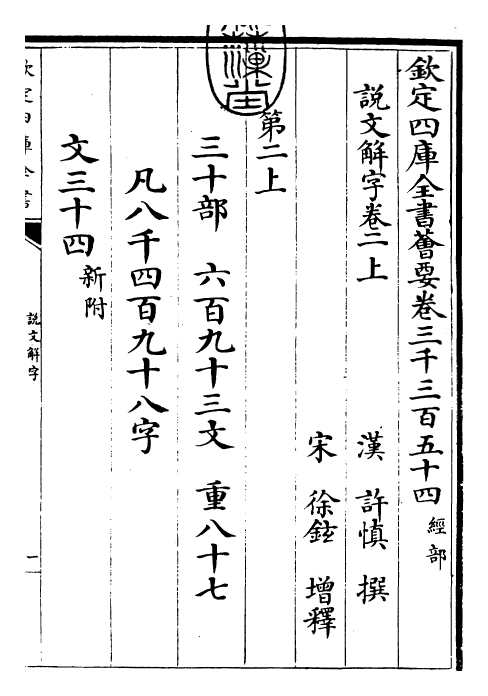 欽定四庫全書薈要卷三千三百五十四 經部
説文解字卷二上
漢 許慎 撰
宋 徐鉉 增釋
第二上
三十部 六百九十三文 重八十七
凡八千四百九十八字
文三十四 新附
欽定四庫全書
説文解字
一